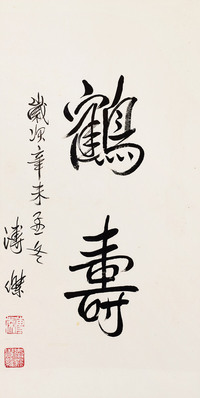 鶴壽
歲次辛未孟冬
溥傑